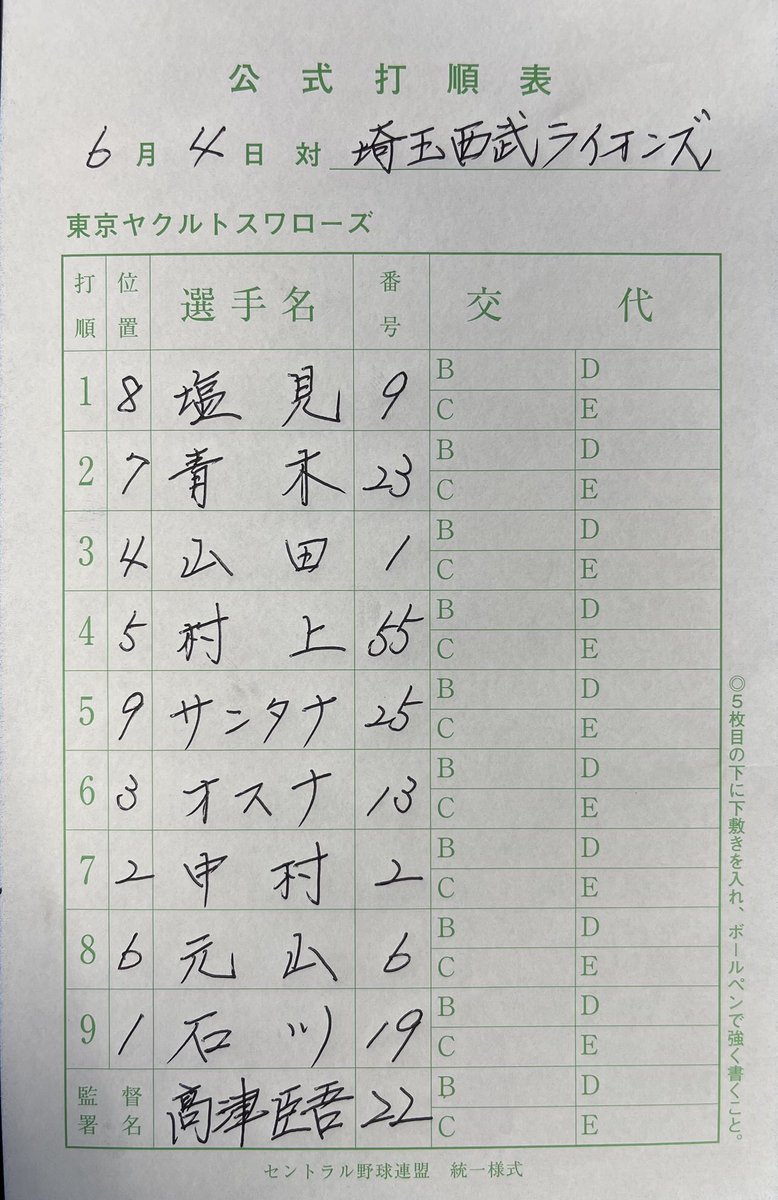 公式打順表
6月4日対 埼玉西武ライオンズ
東京ヤクルトスワローズ
打順 位置 選手名 番号 交代
1 8 塩見 9 B D C E
2 7 青木 23 B D C E
3 4 山田 1 B D C E
4 5 村上 55 B D C E
5 9 サンタナ 25 B D C E
6 3 オスナ 13 B D C E
7 2 中村 2 B D C E
8 6 元山 6 B D C E
9 1 石川 19 B D C E
監督署名 高津臣吾 22 B D C E
◎5枚目の下に下敷きを入れ、ボールペンで強く書くこと。
セントラル野球連盟 統一様式